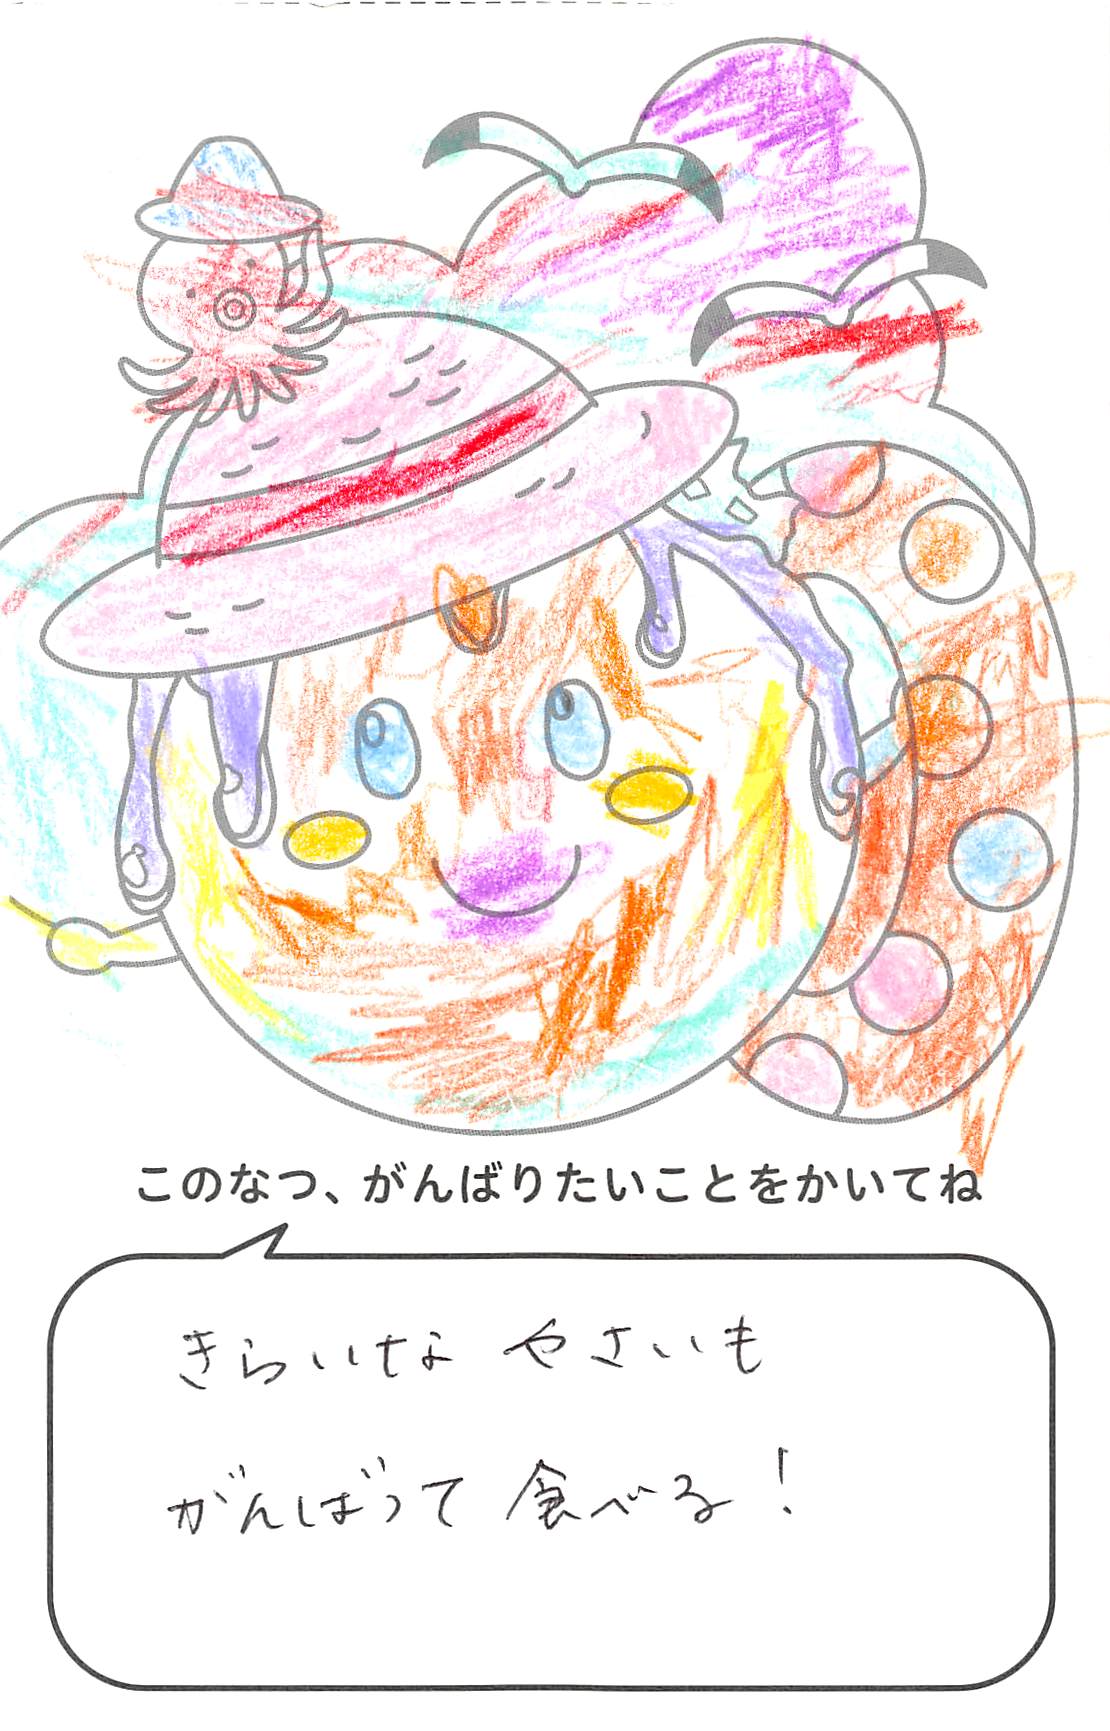 このなつ、がんばりたいことをかいてね
きらいな やさいも
がんばって 食べる!